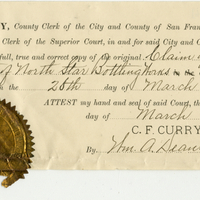 Y, County Clerk of the City and County of San Fran
Clerk of the Superior Court, in and for said City and C
full, true and correct copy of the original Claim
of North Star Bottling Works in the
the 25th day of March
ATTEST my hand and seal of said Court, th
day of March
C. F. CURRY
By, Wm. A. Deane